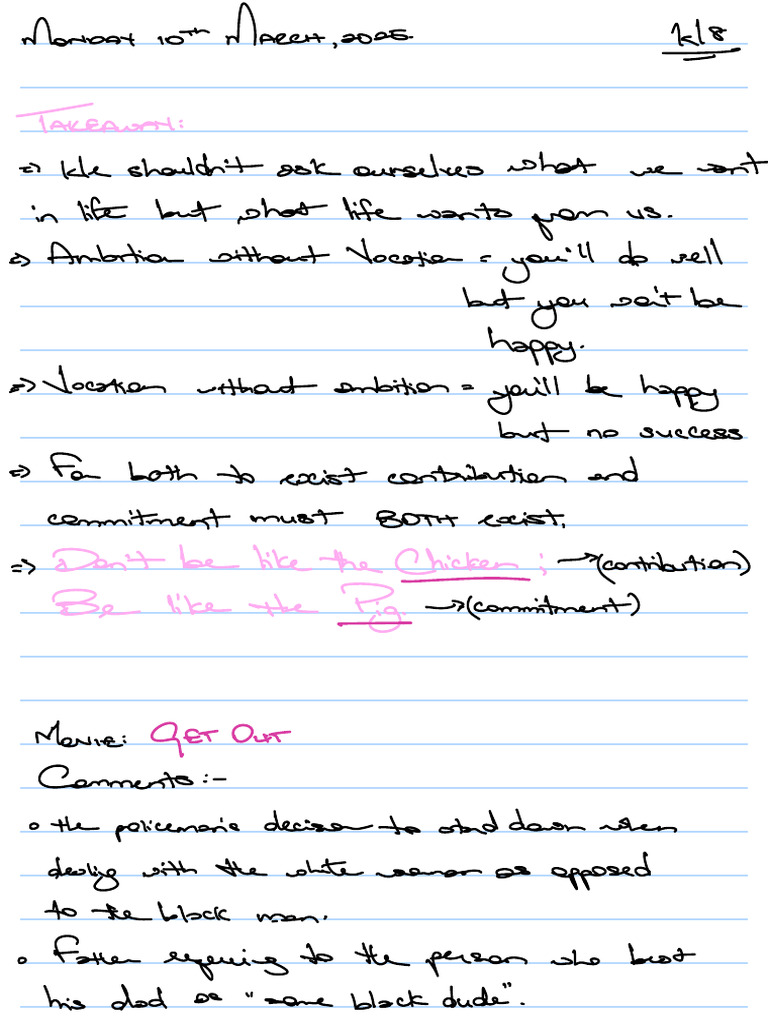 MONDAY 10TH MARCH, 2025
W8
TAKEAWAY:
=> We shouldn't ask ourselves what we want
in life but what life wants from us.
=> Ambition without Vocation = you'll do well
but you won't be
happy.
=> Vocation without ambition = you'll be happy
but no success
=> For both to exist contribution and
commitment must BOTH exist.
=> Don't be like the Chicken; →(contribution)
Be like the Pig. →(commitment)
MOVIE: GET OUT
Comments:-
• the policeman's decision to stand down when
dealing with the white woman as opposed
to the black man.
• Father referring to the person who beat
his dad as "some black dude".